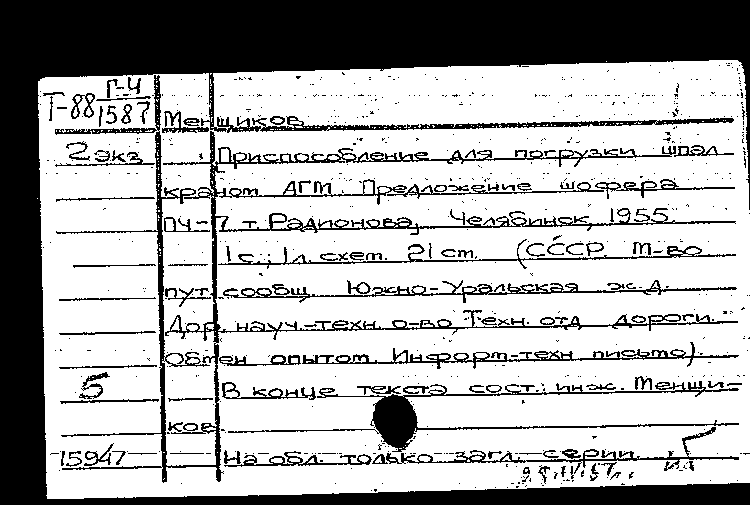 Г-4
Т-88 1587
Менщиков
2 экз Приспособление для погрузки шпал
краном АГМ. Предложение шофера
ПЧ-7 т. Радионова, Челябинск, 1955.
1 с.; 1 л. схем. 21 см. (СССР. М-во
пут. сообщ. Южно-Уральская ж.д.
Дор. науч.-техн. о-во, Техн. отд. дороги.
Обмен опытом. Информ.-техн. письмо).
5 В конце текста сост.: инж. Менщи-
ков
15947 На обл. только загл. серии.